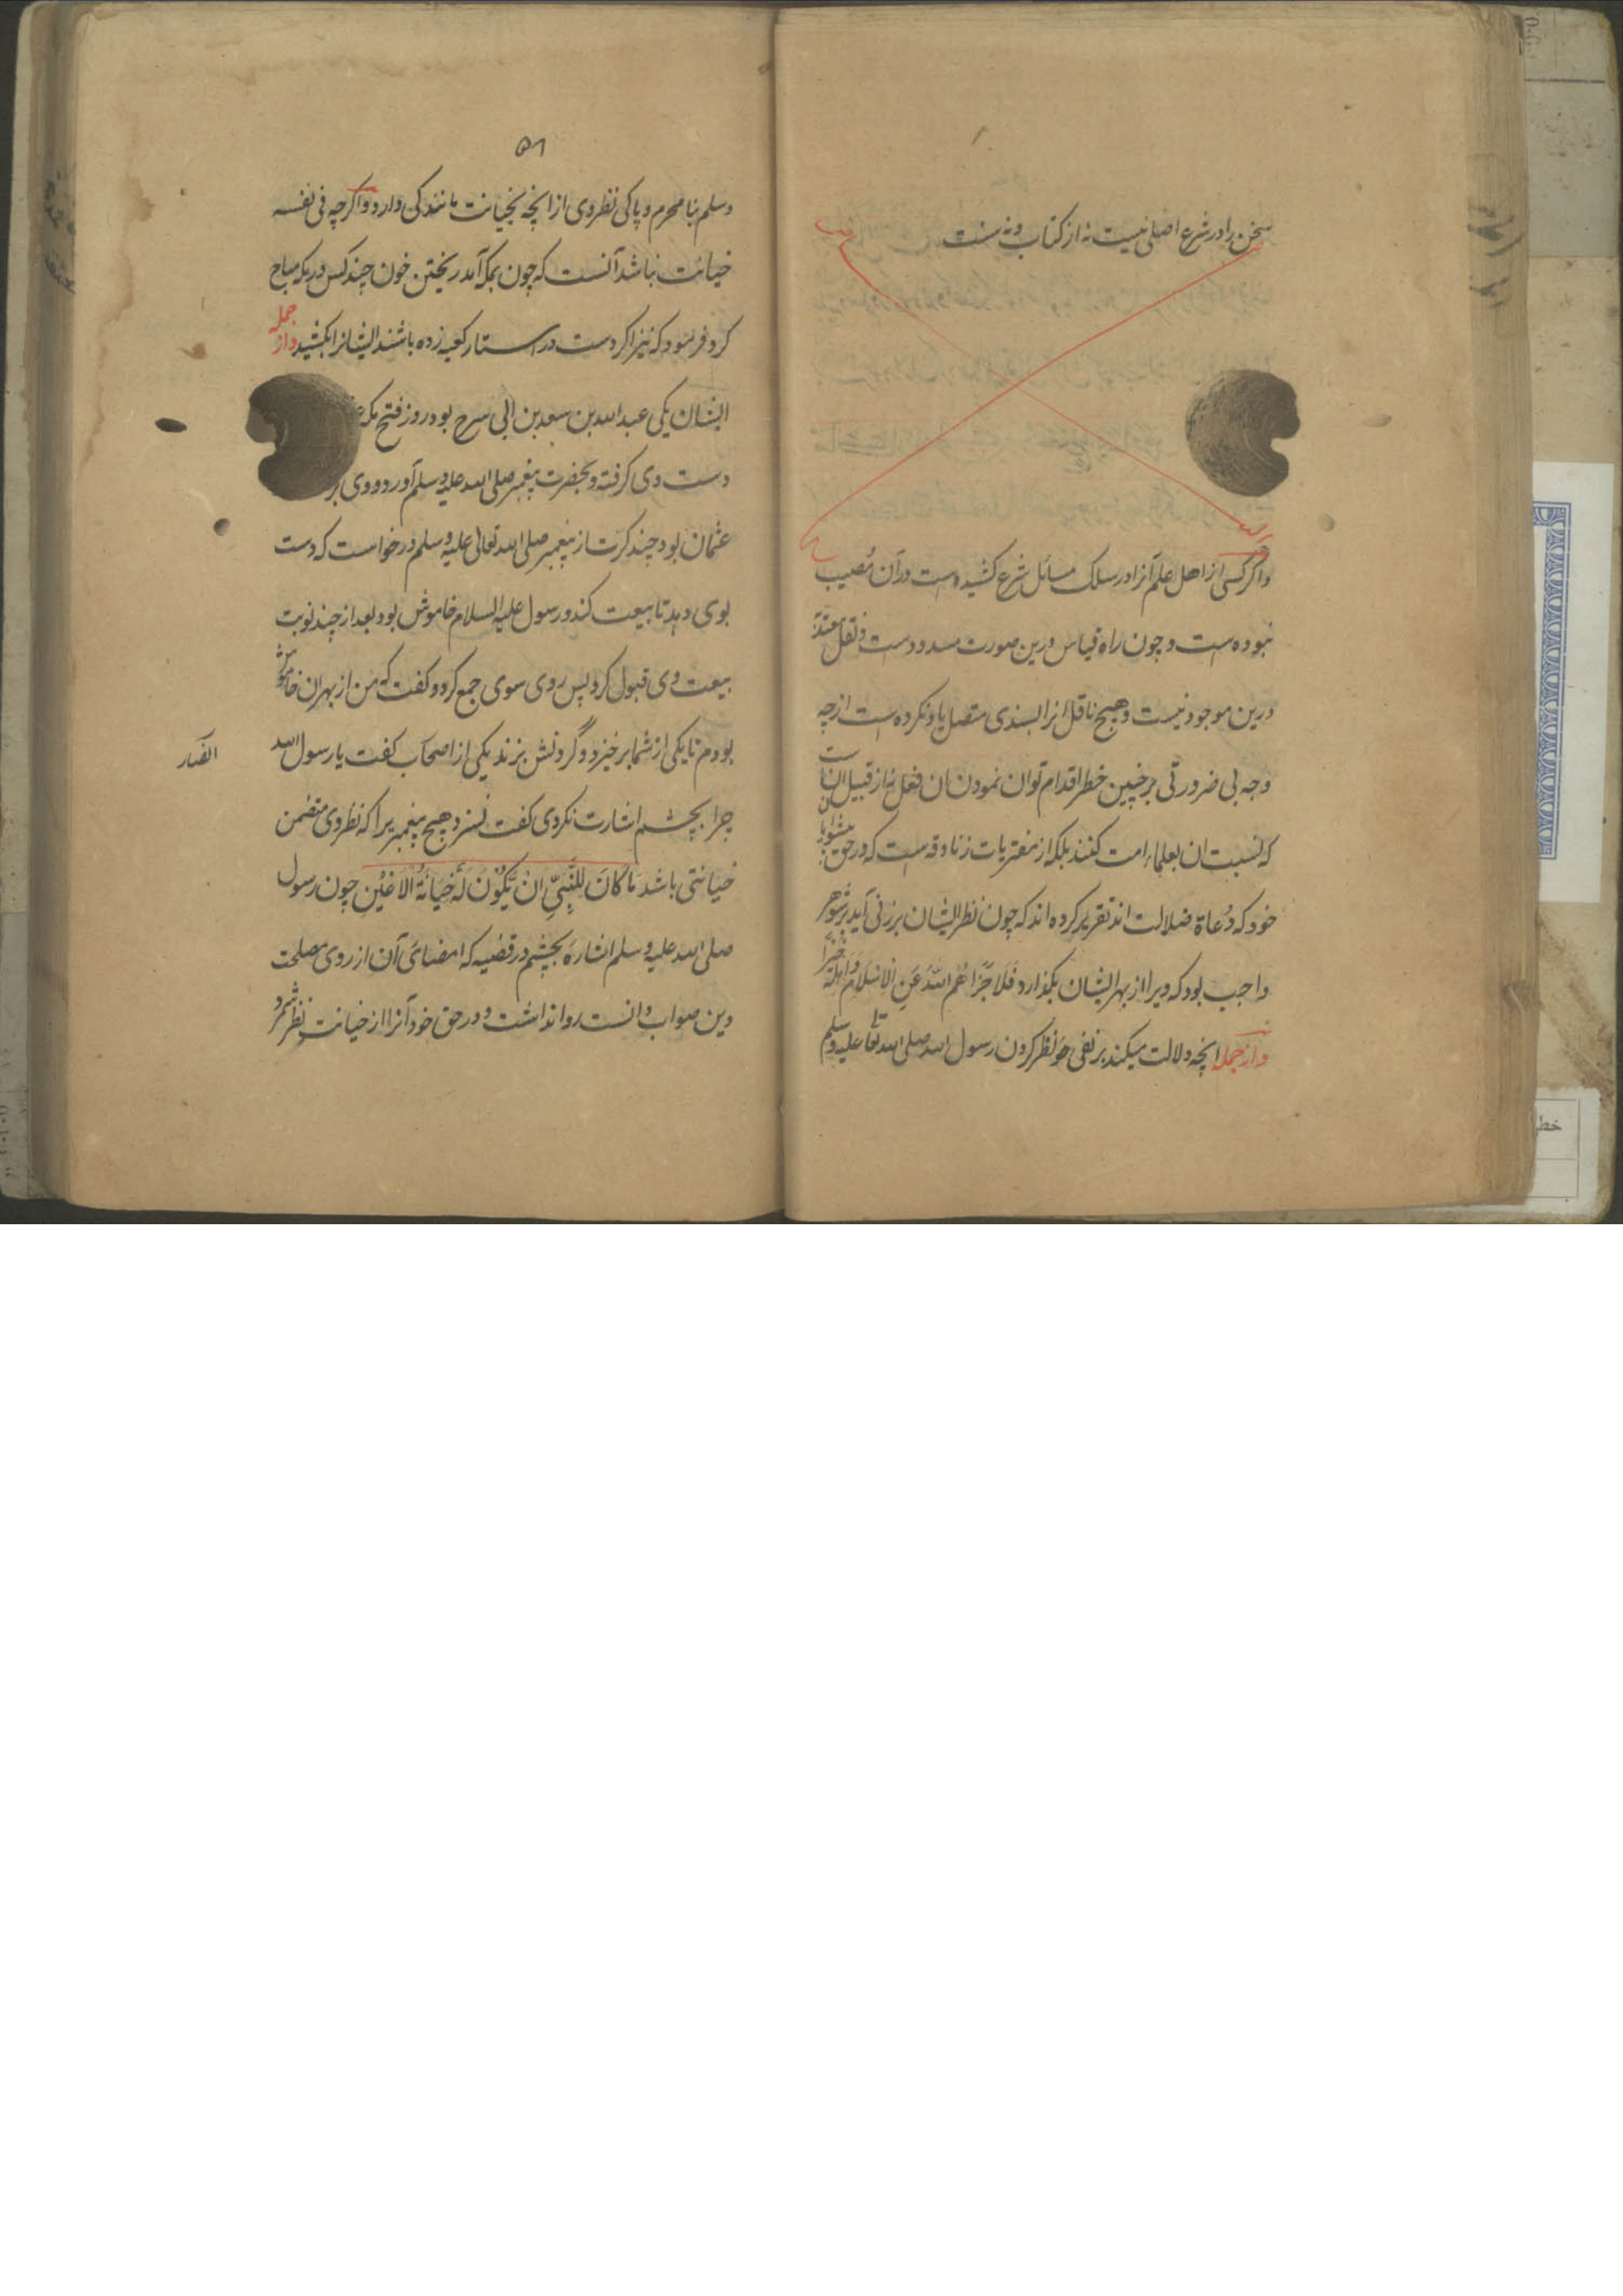 سخن را در شرع اصلی نیست نه از کتاب و نه سنت
واکر کسی از اهل علم آنرا در سلک مسائل شرع کشیده است در آن مُصیب
نبوده است و چون راه قیاس درین صورت مسدودست و نقل معتمد
درین موجود نیست و هیچ ناقل انرا بسندی متصل یاد نکرده است از چه
وجه بی ضرورتی بر چنین خطر اقدام توان نمودن ان فعل نه از قبیل آنست
که نسبت ان بعلماء امت کنند بلکه از مفتریات زنادقه است که در حق پیشوایان
خود که دُعاة ضلالت اند تقریر کرده اند که چون نظر ایشان بر زنی آید بر شوهر
واجب بود که ویرا از بهر ایشان بکذارد فَلَا جَزَاهُم اللّٰهُ عَنِ الاِسْلَامِ وَاهْلِهِ خَیْرًا
وازجمله انچه دلالت میکند بر نفی نظر کردن رسول الله صلی الله تعالی علیه وسلم
۵۱
وسلم بنا محرم و پاکی نظر وی از انچه بخیانت مانندکی دارد واکرچه فی نفسه
خیانت نباشد آنست که چون بمکه آمد ریختن خون چند کس در مکه مباح
کرد و فرمود که نیز اکر دست در استار کعبه زده باشند ایشانرا بکشید واز جمله
ایشان یکی عبد الله بن سعد بن ابی سرح بود روز فتح مکه
دست وی کرفته و بحضرت پیغمبر صلی الله علیه وسلم آورد و وی
عثمان بود چند کرت از پیغمبر صلی الله تعالی علیه وسلم درخواست که دست
بوی دهد تا بیعت کند و رسول علیه السلام خاموش بود بعد از چند نوبت
بیعت وی قبول کرد پس روی سوی جمع کرد و کفت که من از بهر ان خاموش
بودم تا یکی از شما برخیزد و گردنش بزند یکی از اصحاب کفت یا رسول الله
چرا بچشم اشارت نکردی کفت نسزد هیچ پیغمبریرا که نظر وی متضمن
خیانتی باشد مَا کَانَ لِلنَّبِیِّ اَنْ یَّکُوْنَ لَهُ خِیَانَةُ الْاَعْیُنِ چون رسول
صلی الله علیه وسلم اشارهٔ بچشم در قضیه که امضای آن از روی مصلحت
دین صواب دانست روا نداشت و در حق خود آنرا از خیانت نظر شمرد